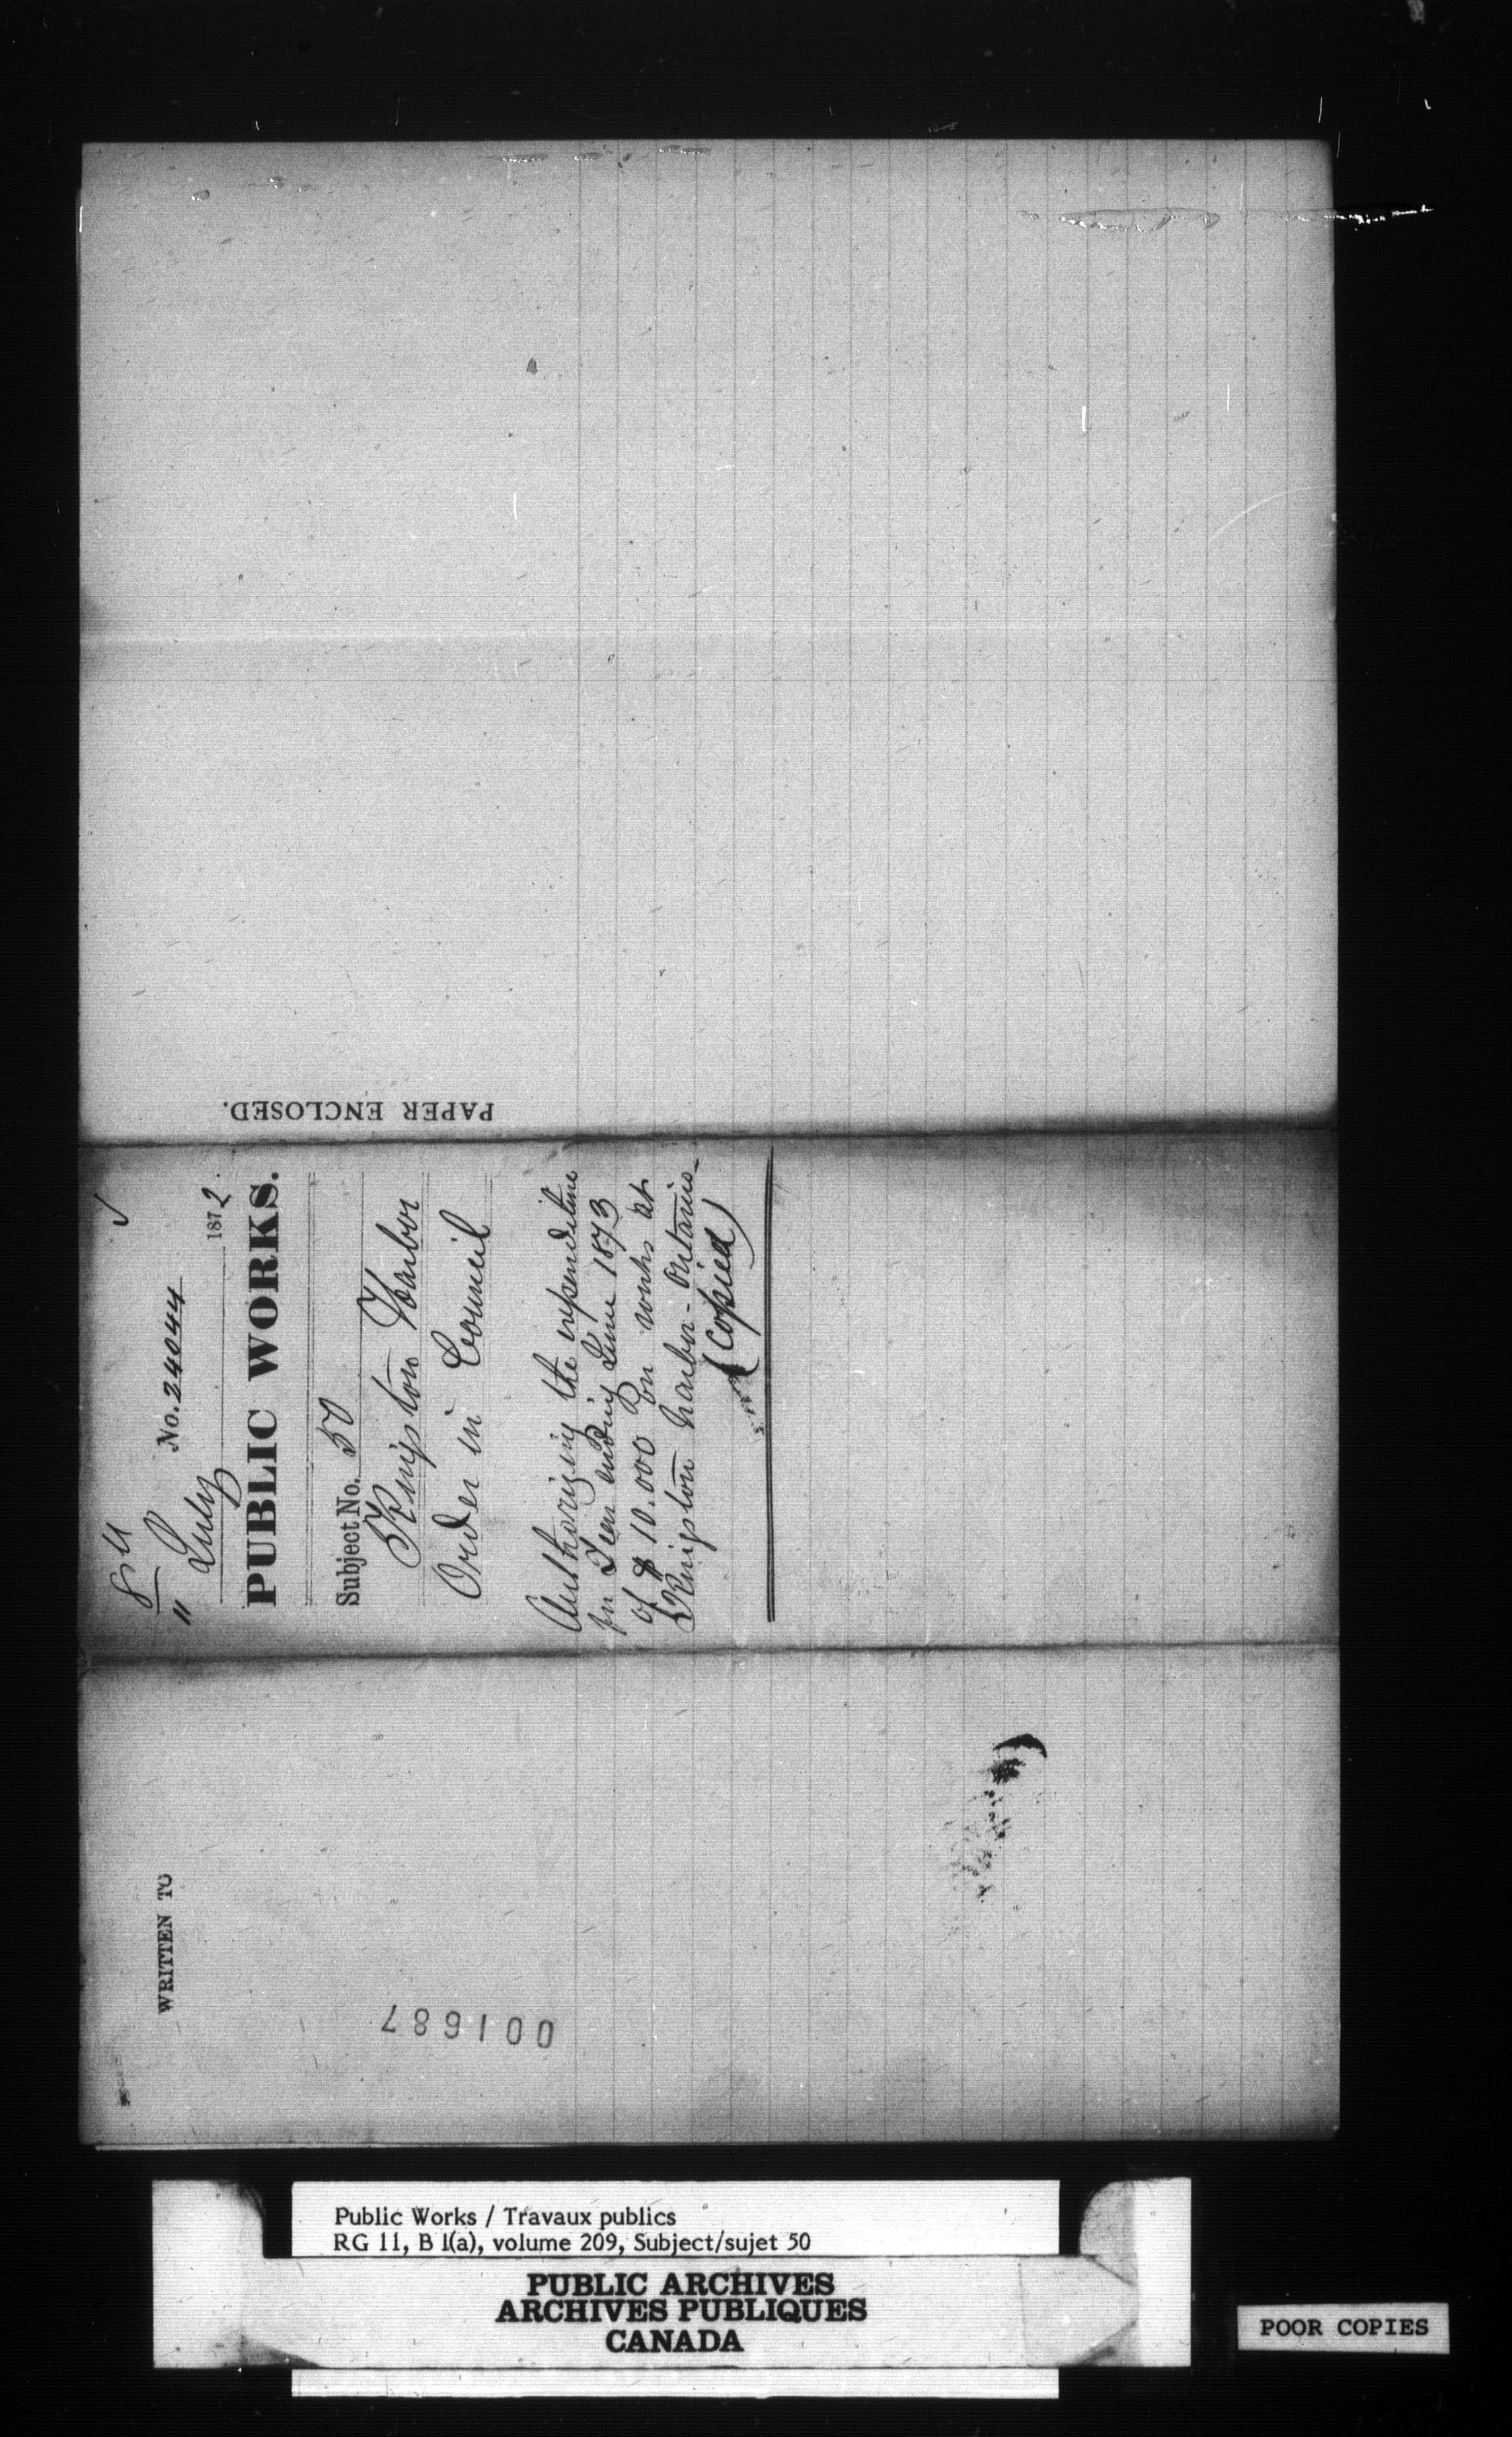 PAPER ENCLOSED.
No. 24044
11 July 1872.
PUBLIC WORKS.
Subject No. 50
Kingston Harbor
Order in Council
Authorizing the expenditure
in Year ending June 1873
of $10.000 on works at
Kingston harbor - Ontario -
(Copied)
WRITTEN TO
001687
Public Works / Travaux publics
RG 11, B 1(a), volume 209, Subject/sujet 50
PUBLIC ARCHIVES
ARCHIVES PUBLIQUES
CANADA
POOR COPIES